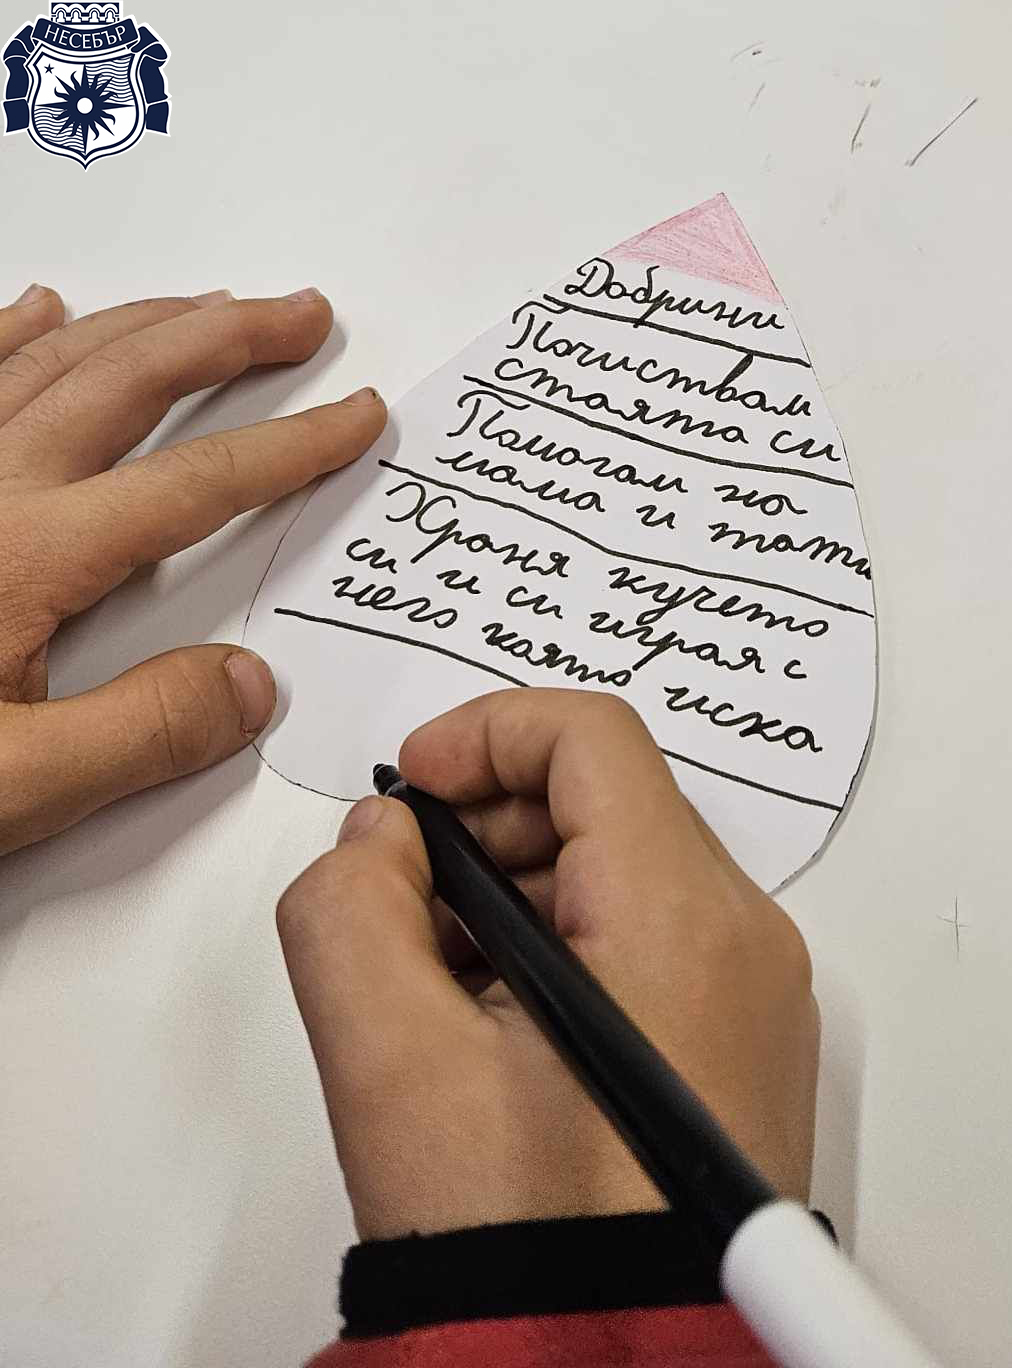 НЕСЕБЪР
Добрини
Почиствам
стаята си
Помагам на
мама и тати
Храня кучето
си и си играя с
него когато иска